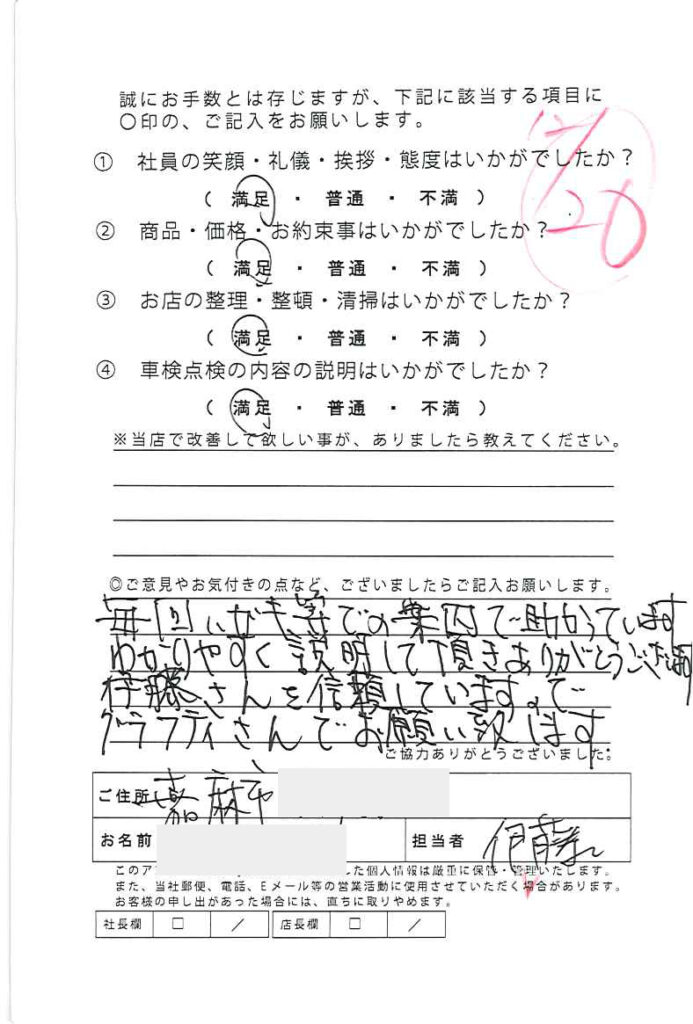 誠にお手数とは存じますが、下記に該当する項目に
〇印の、ご記入をお願いします。
12/20
① 社員の笑顔・礼儀・挨拶・態度はいかがでしたか？
( 満足 ・ 普通 ・ 不満 )
② 商品・価格・お約束事はいかがでしたか？
( 満足 ・ 普通 ・ 不満 )
③ お店の整理・整頓・清掃はいかがでしたか？
( 満足 ・ 普通 ・ 不満 )
④ 車検点検の内容の説明はいかがでしたか？
( 満足 ・ 普通 ・ 不満 )
※当店で改善して欲しい事が、ありましたら教えてください。
◎ご意見やお気付きの点など、ございましたらご記入お願いします。
毎回ハガキ等での案内で助かっています
わかりやすく説明して頂きありがとうございます
伊藤さんを信頼していますので
グラフティさんでお願い致します
ご協力ありがとうございました。
ご住所 嘉麻市
お名前 担当者 伊藤
このア した個人情報は厳重に保管・管理いたします。
また、当社郵便、電話、Eメール等の営業活動に使用させていただく場合があります。
お客様の申し出があった場合には、直ちに取りやめます。
社長欄 □ / 店長欄 □ /